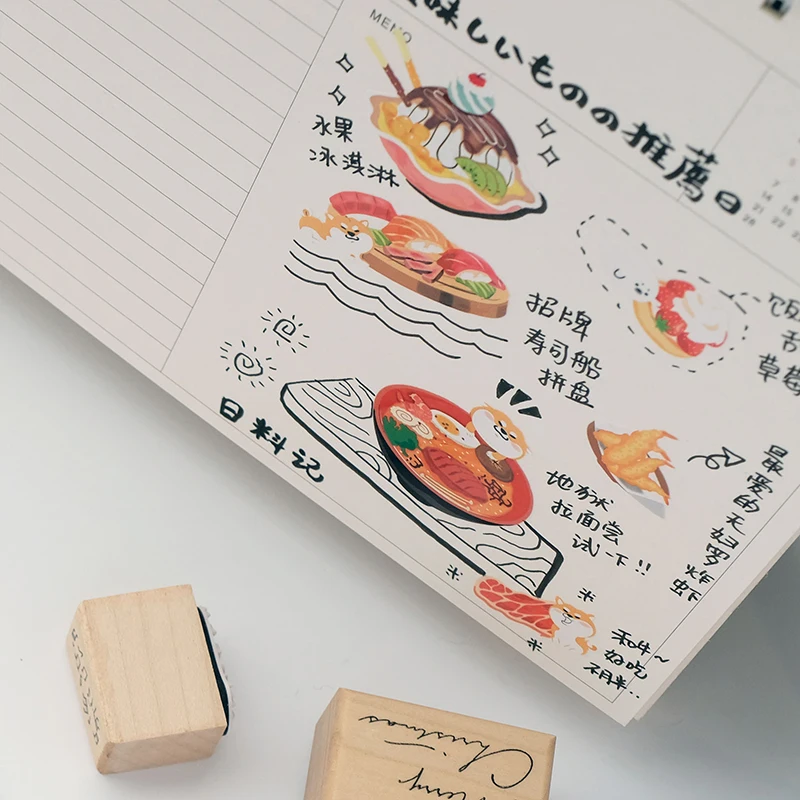 味しいものの推薦日
MEMO
水果
冰淇淋
招牌
寿司船
拼盘
饭
草莓
日料记
地狱
拉面尝
试一下!!
最爱的天妇罗
炸虾
和牛~
好吃
Christmas